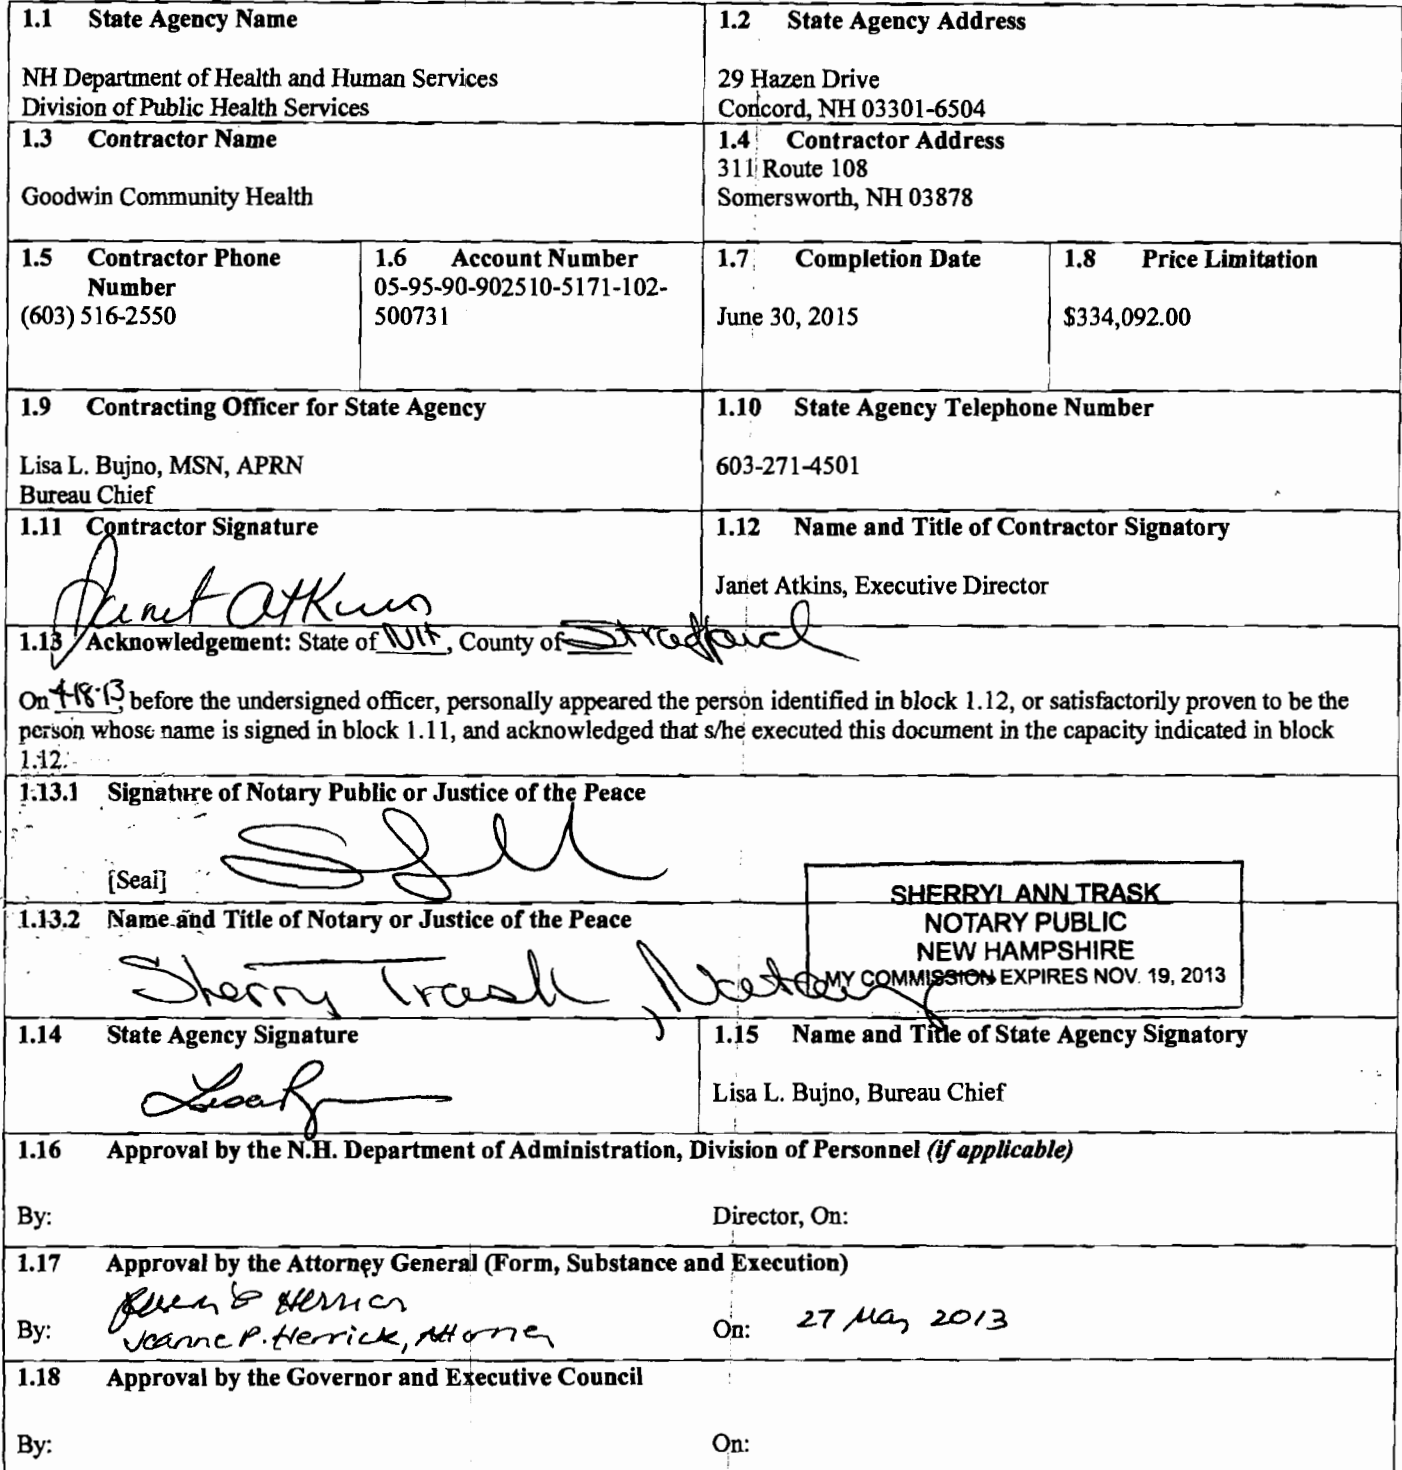 1.1 State Agency Name
NH Department of Health and Human Services
Division of Public Health Services
1.2 State Agency Address
29 Hazen Drive
Concord, NH 03301-6504
1.3 Contractor Name
Goodwin Community Health
1.4 Contractor Address
311 Route 108
Somersworth, NH 03878
1.5 Contractor Phone
Number
(603) 516-2550
1.6 Account Number
05-95-90-902510-5171-102-
500731
1.7 Completion Date
June 30, 2015
1.8 Price Limitation
$334,092.00
1.9 Contracting Officer for State Agency
Lisa L. Bujno, MSN, APRN
Bureau Chief
1.10 State Agency Telephone Number
603-271-4501
1.11 Contractor Signature
Janet Atkins
1.12 Name and Title of Contractor Signatory
Janet Atkins, Executive Director
1.13 Acknowledgement: State of NH, County of Strafford
On 4-18-13, before the undersigned officer, personally appeared the person identified in block 1.12, or satisfactorily proven to be the
person whose name is signed in block 1.11, and acknowledged that s/he executed this document in the capacity indicated in block
1.12.
1.13.1 Signature of Notary Public or Justice of the Peace
[Seal]
SHERRYL ANN TRASK
NOTARY PUBLIC
NEW HAMPSHIRE
MY COMMISSION EXPIRES NOV. 19, 2013
1.13.2 Name and Title of Notary or Justice of the Peace
Sherry Trask, Notary
1.14 State Agency Signature
1.15 Name and Title of State Agency Signatory
Lisa L. Bujno, Bureau Chief
1.16 Approval by the N.H. Department of Administration, Division of Personnel (if applicable)
By:
Director, On:
1.17 Approval by the Attorney General (Form, Substance and Execution)
By: Jeanne P. Herrick, Attorney
On: 27 May 2013
1.18 Approval by the Governor and Executive Council
By:
On: